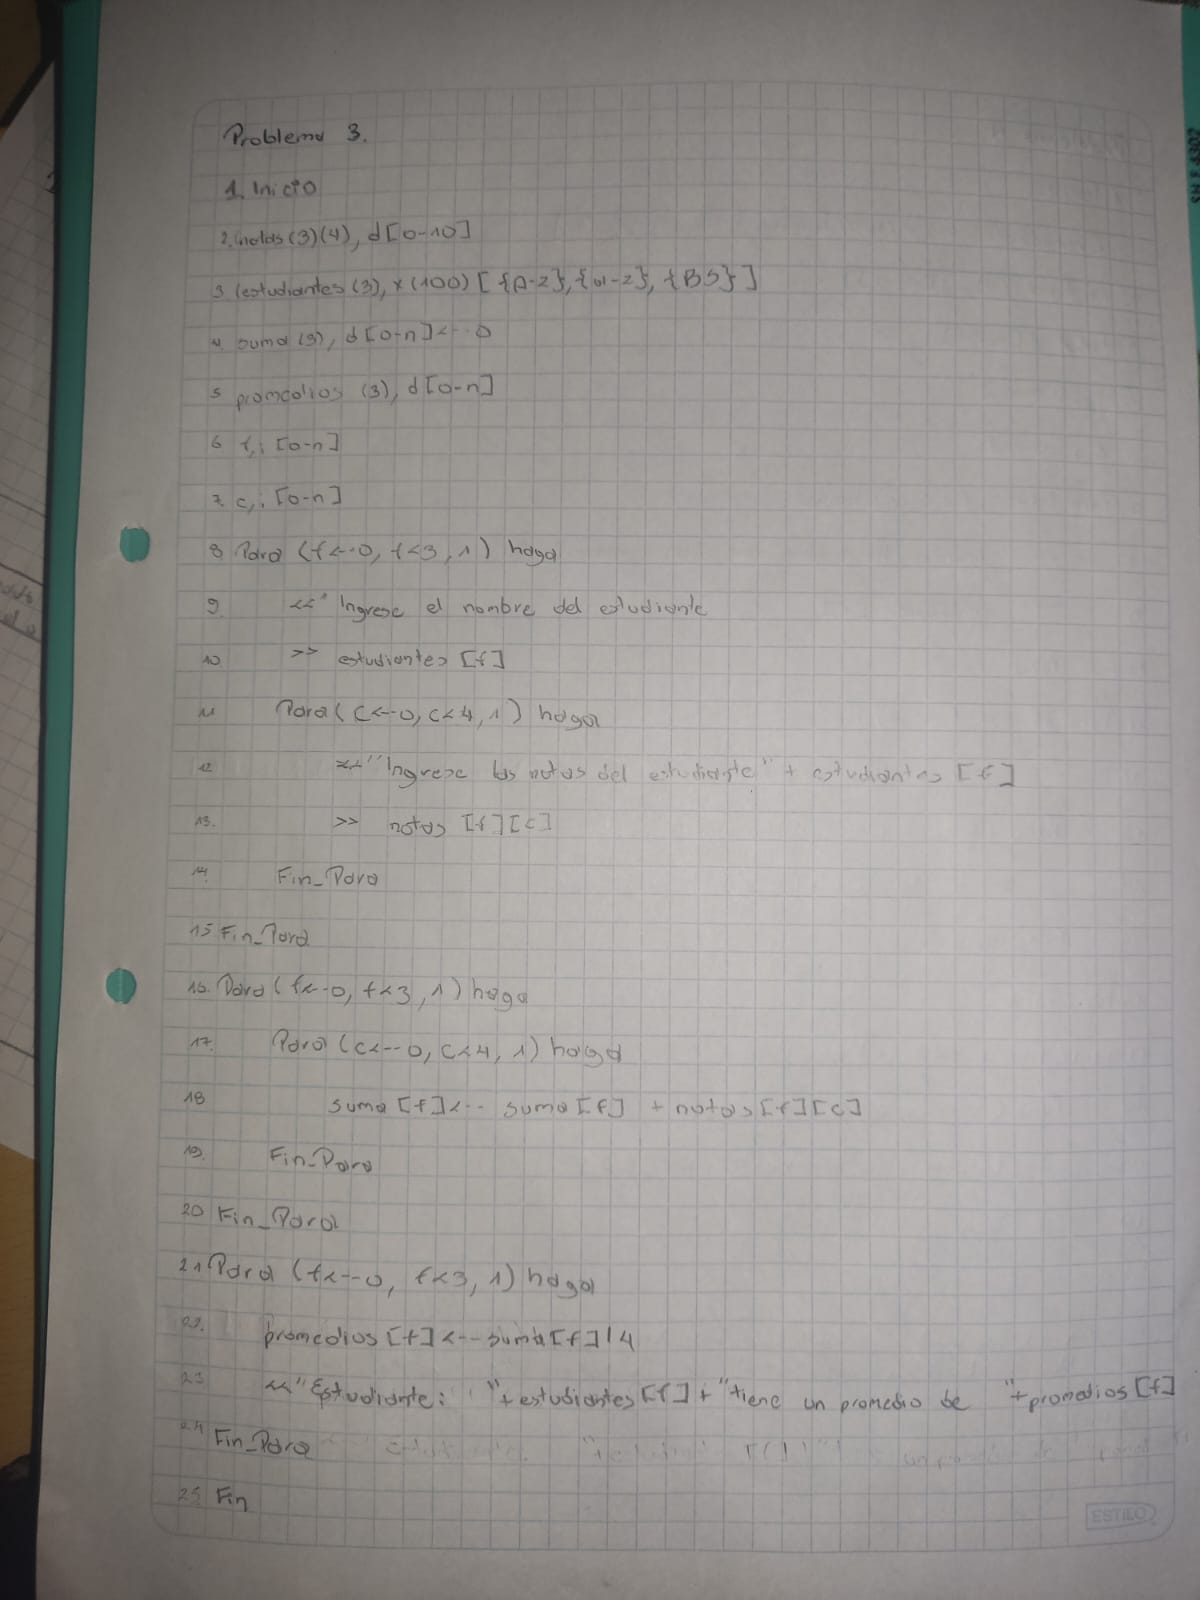 Problema 3.
1. Inicio
2. notas (3)(4), d[0-10]
3 estudiantes (3), x (100) [{A-Z},{a-z},{BS}]
4. suma (3), d[0-n]<--0
5 promedios (3), d[0-n]
6 f,i [0-n]
7. c,i [0-n]
8 Para (f<--0, f<3, 1) haga
9. <<" Ingrese el nombre del estudiante
10 >> estudiantes [f]
11 Para( c<--0, c<4, 1) haga
12 <<"Ingrese las notas del estudiante" + estudiantes [f]
13. >> notas [f][c]
14. Fin_Para
15 Fin_Para
16. Para (f<--0, f<3, 1) haga
17. Para (c<--0, c<4, 1) haga
18 suma [f]<-- suma [f] + notas [f][c]
19. Fin_Para
20 Fin_Para
21 Para (f<--0, f<3, 1) haga
22. promedios [f]<--suma [f]/4
23 <<"Estudiante: "+ estudiantes [f] + "tiene un promedio de "+promedios [f]
24 Fin_Para
25 Fin
ESTILO